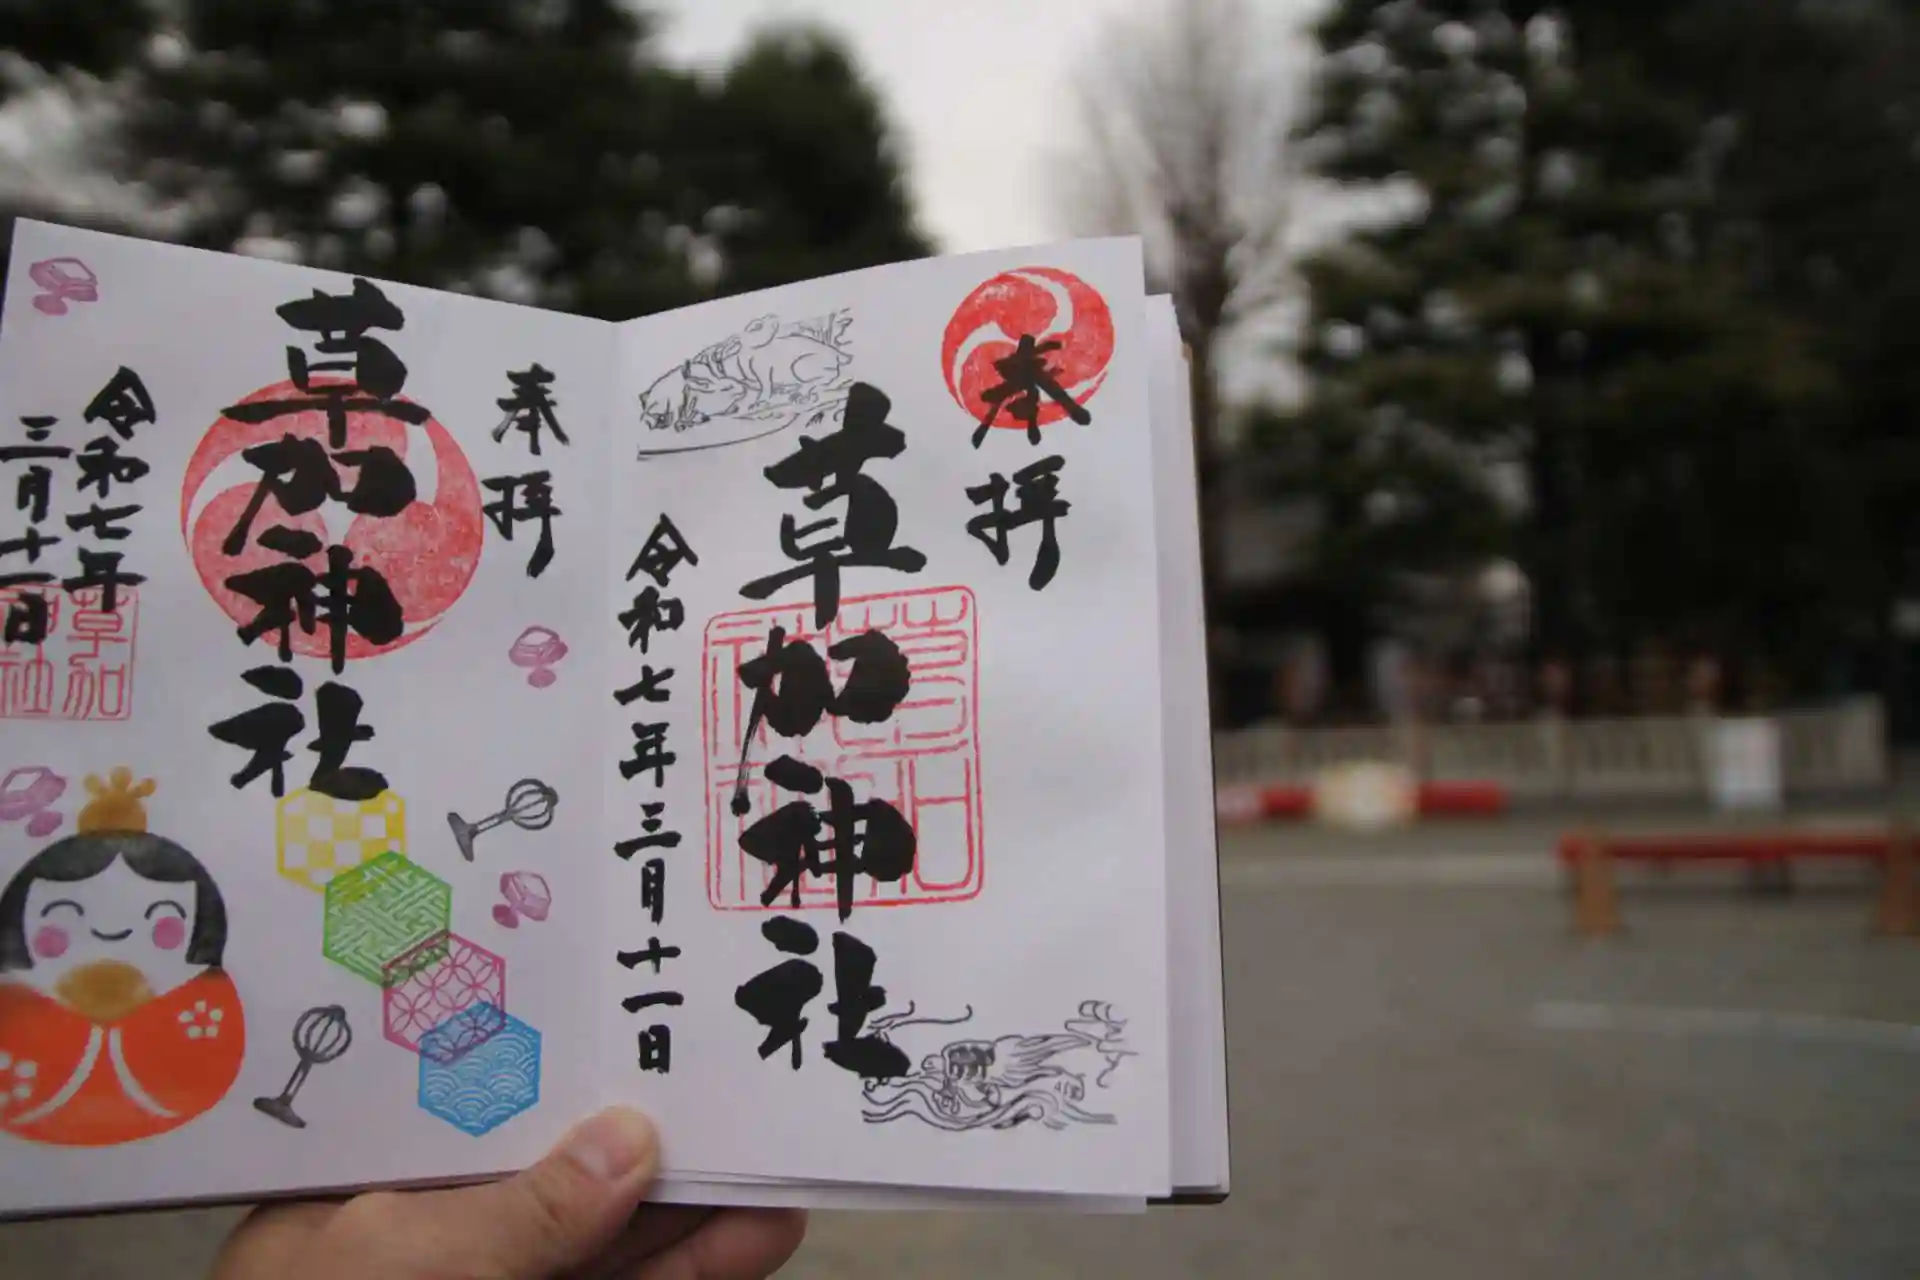 奉拝
草加神社
令和七年三月十一日
奉拝
草加神社
令和七年
三月十一日
草加
神社